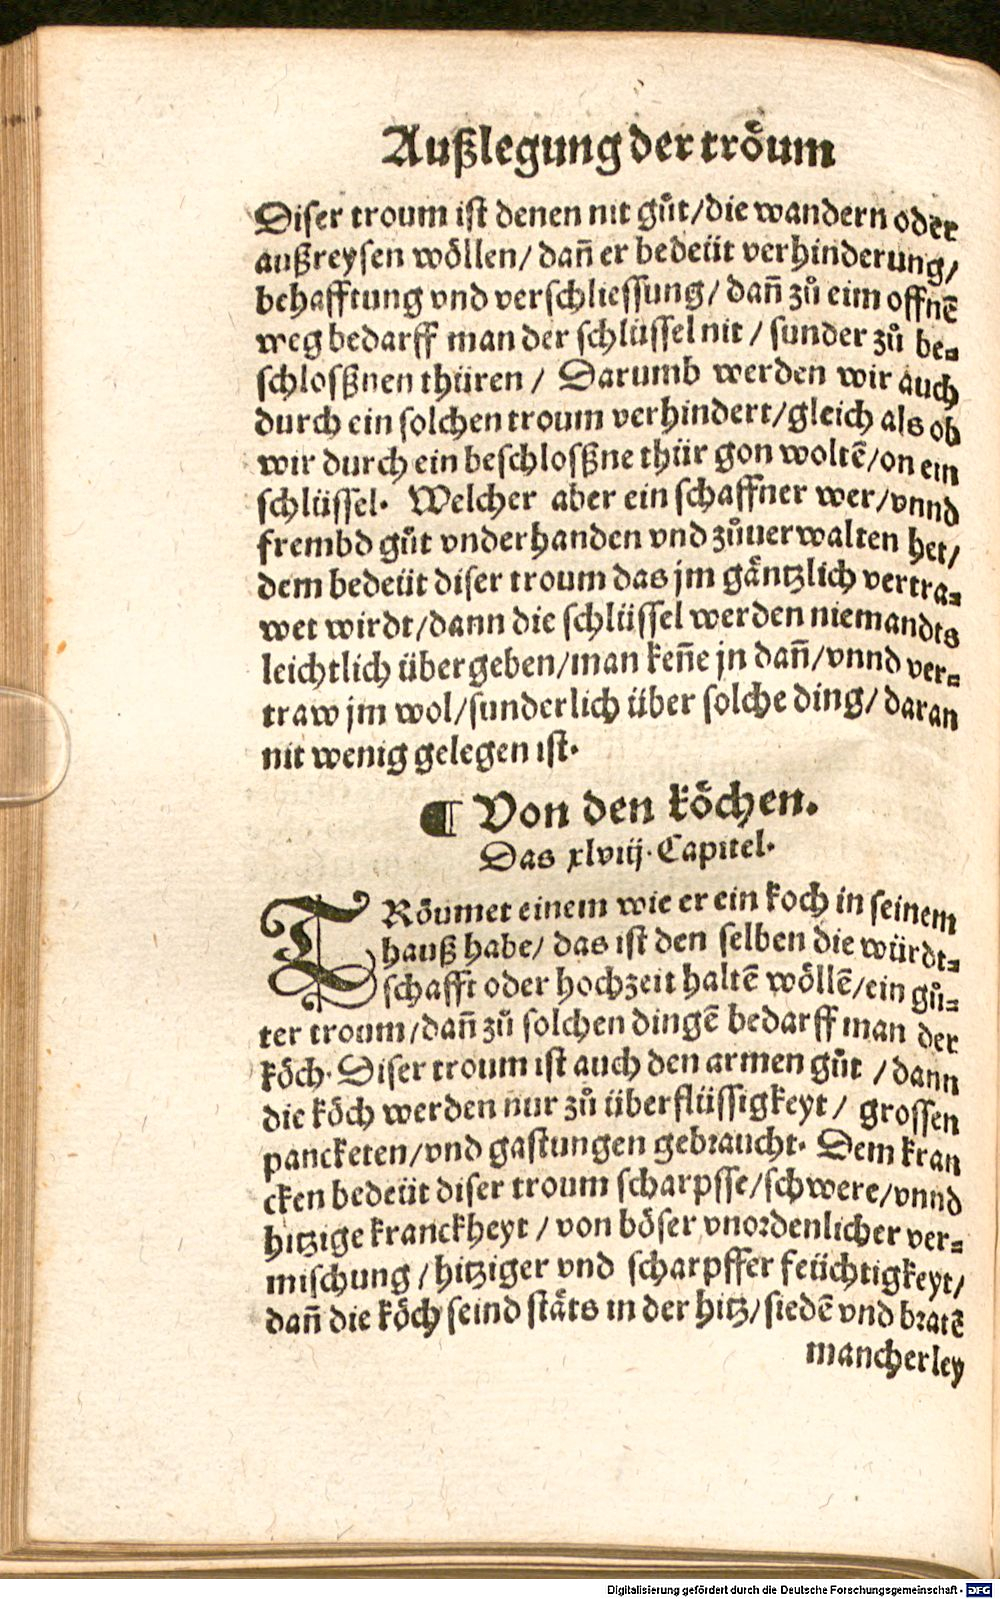 Außlegung der tröum
Diser troum ist denen nit gůt/die wandern oder
außreysen wöllen/ dañ er bedeüt verhinderung/
behafftung vnd verschliessung/ dañ zů eim offnē
weg bedarff man der schlüssel nit / sunder zů be⸗
schloßnen thüren / Darumb werden wir auch
durch ein solchen troum verhindert/gleich als ob
wir durch ein beschloßne thür gon woltē/on ein
schlüssel. Welcher aber ein schaffner wer/vnnd
frembd gůt vnderhanden vnd zůuerwalten het/
dem bedeüt diser troum das jm gäntzlich vertra⸗
wet wirdt/dann die schlüssel werden niemandts
leichtlich übergeben/man keñe jn dañ/vnnd ver⸗
traw jm wol/sunderlich über solche ding/ daran
nit wenig gelegen ist.
¶ Von den köchen.
Das xlviij. Capitel.
TRöumet einem wie er ein koch in seinem
hauß habe/ das ist den selben die würdt⸗
schafft oder hochzeit haltē wöllē/ein gů⸗
ter troum/dañ zů solchen dingē bedarff man der
köch. Diser troum ist auch den armen gůt / dann
die köch werden nur zů überflüssigkeyt / grossen
pancketen/vnd gastungen gebraucht. Dem kran
cken bedeüt diser troum scharpffe/schwere/vnnd
hitzige kranckheyt / von böser vnordenlicher ver⸗
mischung / hitziger vnd scharpffer feüchtigkeyt/
dañ die köch seind stäts in der hitz/siedē vnd bratē
mancherley
Digitalisierung gefördert durch die Deutsche Forschungsgemeinschaft - DFG